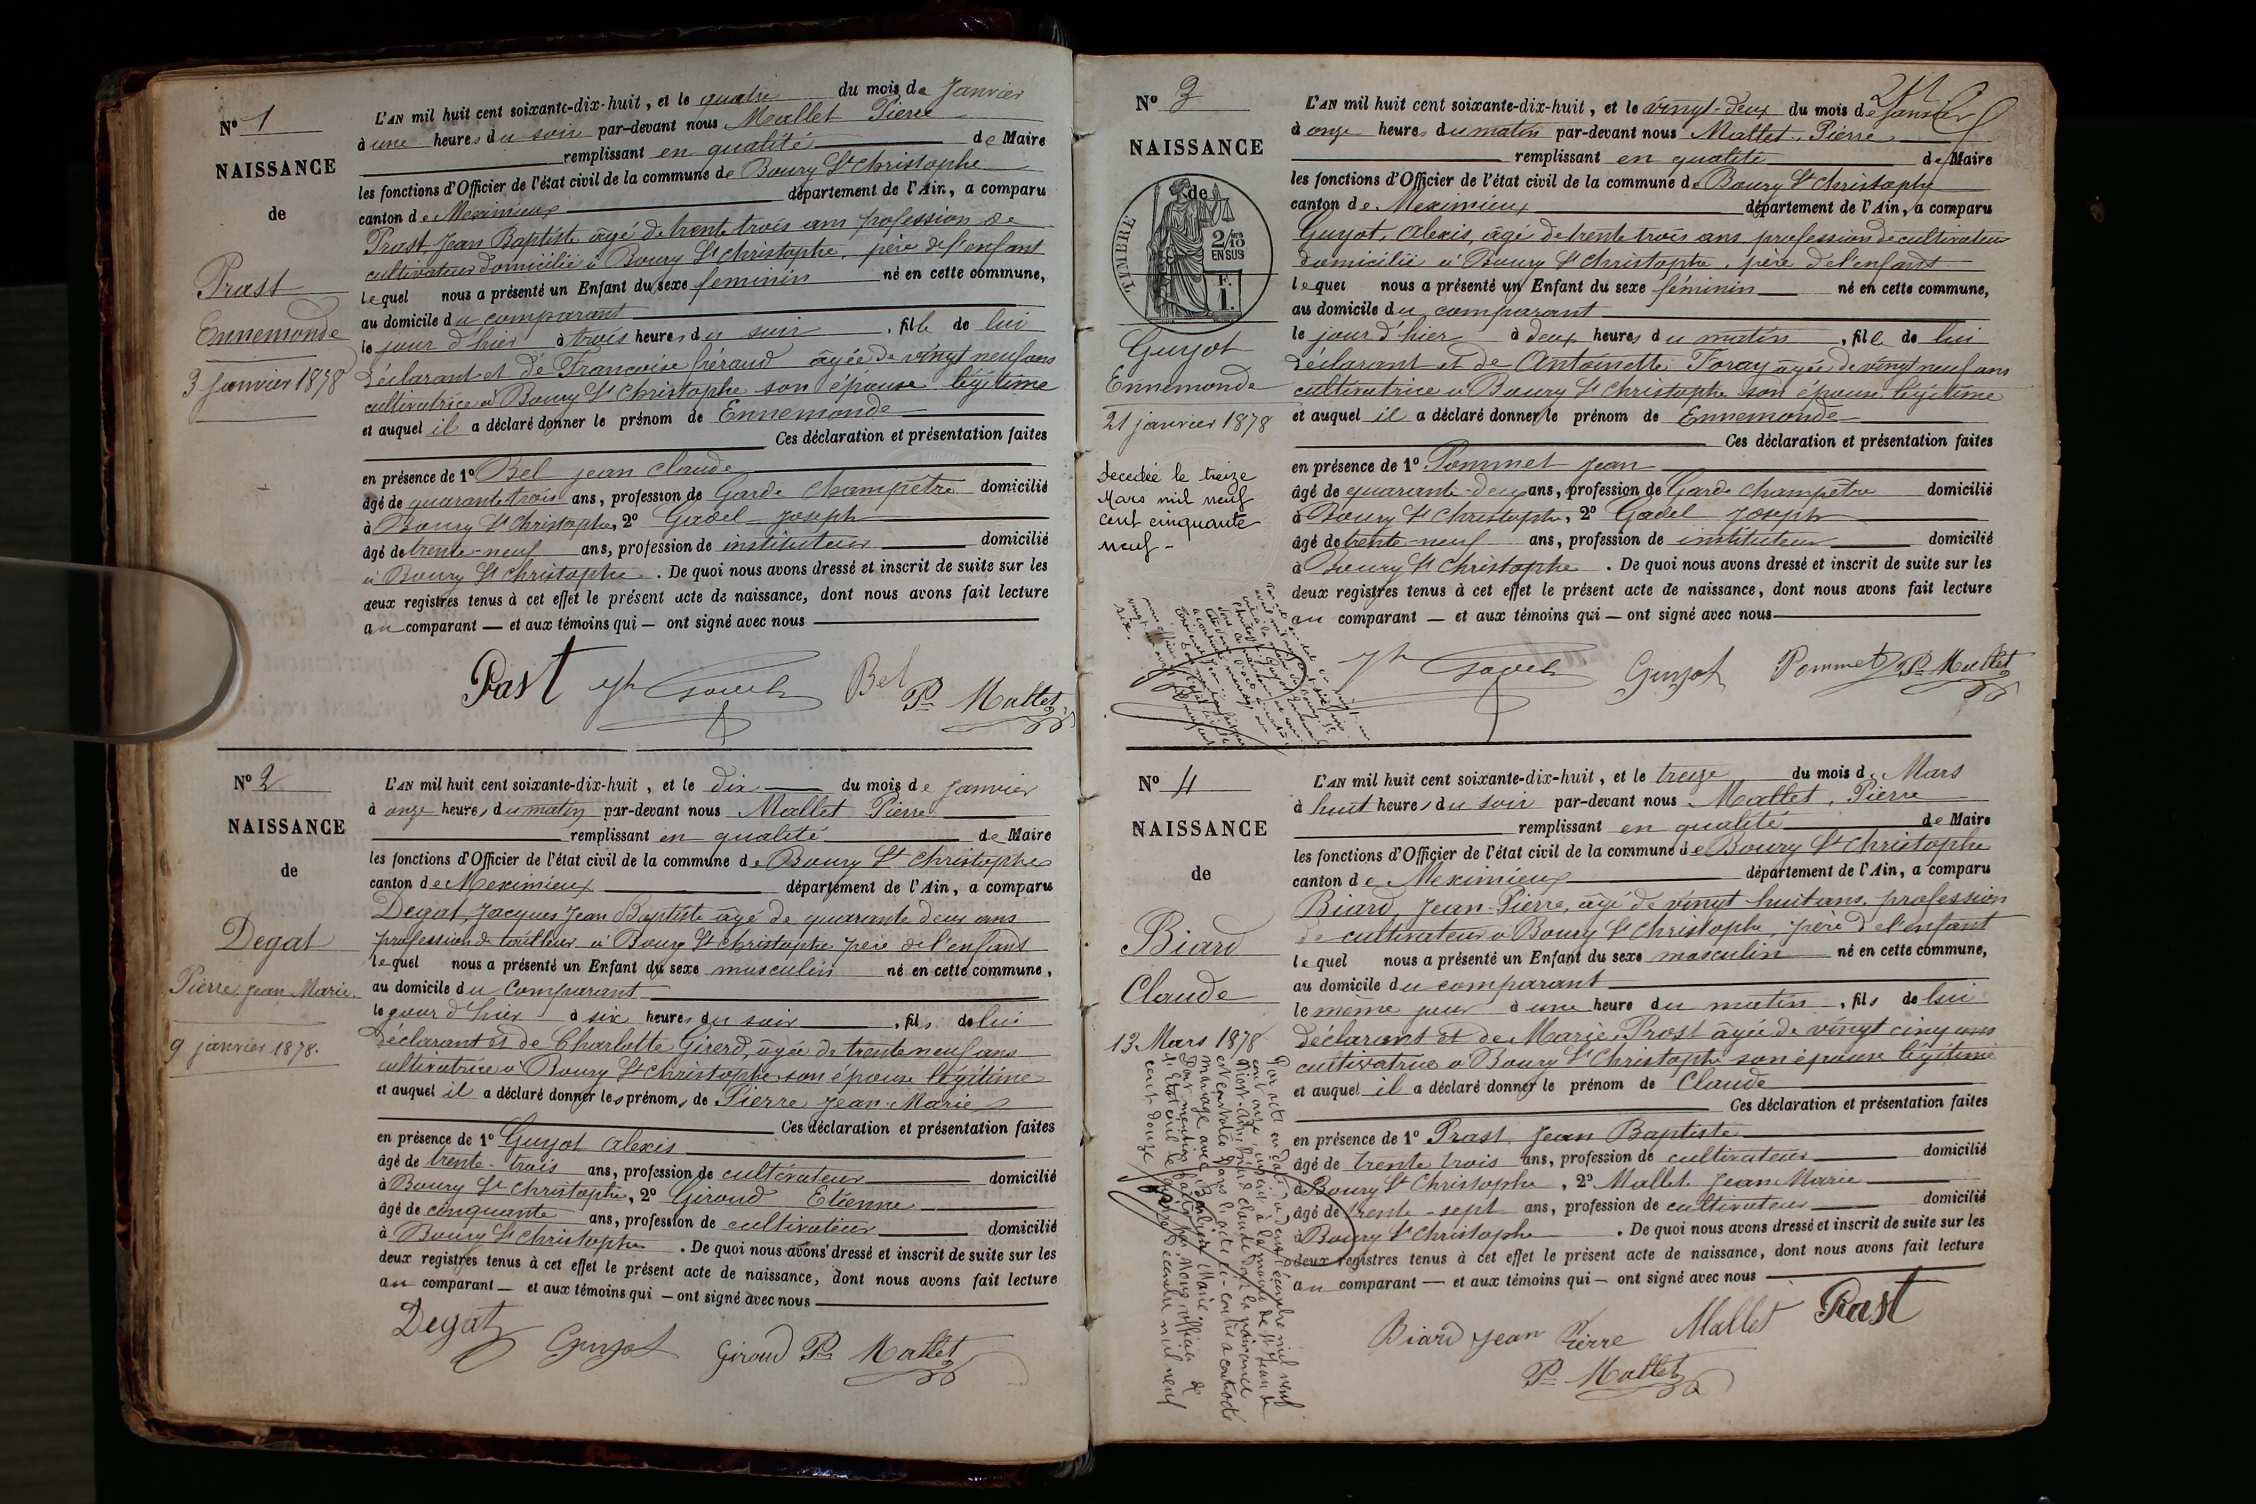 N° 1
NAISSANCE
de
Prast
Ennemonde
3 Janvier 1878
L'AN mil huit cent soixante-dix-huit, et le quatre du mois de Janvier
à une heure du soir par-devant nous Mallet Pierre
remplissant en qualité de Maire
les fonctions d'Officier de l'état civil de la commune de Bourg St Christophe
canton de Meximieux département de l'Ain, a comparu
Prast Jean Baptiste âgé de trente trois ans profession de
cultivateur domicilié à Bourg St Christophe, père de l'enfant
lequel nous a présenté un Enfant du sexe féminin né en cette commune,
au domicile du comparant
le jour d'hier à trois heures du soir, fille de lui
déclarant et de Françoise âgée de vingt neuf ans
cultivatrice à Bourg St Christophe son épouse légitime
et auquel il a déclaré donner le prénom de Ennemonde
Ces déclaration et présentation faites
en présence de 1° Bel Jean Claude
âgé de quarante trois ans, profession de Garde Champêtre domicilié
à Bourg St Christophe, 2° Gadel Joseph
âgé de trente-neuf ans, profession de instituteur domicilié
à Bourg St Christophe. De quoi nous avons dressé et inscrit de suite sur les
deux registres tenus à cet effet le présent acte de naissance, dont nous avons fait lecture
au comparant — et aux témoins qui — ont signé avec nous
Prast Jh Gadel Bel Pre Mallet
N° 2
NAISSANCE
de
Degat
Pierre Jean Marie
9 janvier 1878.
L'AN mil huit cent soixante-dix-huit, et le dix du mois de Janvier
à onze heures du matin par-devant nous Mallet Pierre
remplissant en qualité de Maire
les fonctions d'Officier de l'état civil de la commune de Bourg St Christophe
canton de Meximieux département de l'Ain, a comparu
Degat, Jacques Jean Baptiste âgé de quarante deux ans
profession de tailleur à Bourg St Christophe père de l'enfant
lequel nous a présenté un Enfant du sexe masculin né en cette commune,
au domicile du Comparant
le jour d'hier à six heures du soir, fils de lui
déclarant et de Charlotte Girerd, âgée de trente neuf ans
cultivatrice à Bourg St Christophe son épouse légitime
et auquel il a déclaré donner les prénoms de Pierre Jean Marie
Ces déclaration et présentation faites
en présence de 1° Guyot Alexis
âgé de trente-trois ans, profession de cultivateur domicilié
à Bourg St Christophe, 2° Giroud Etienne
âgé de cinquante ans, profession de cultivateur domicilié
à Bourg St Christophe. De quoi nous avons dressé et inscrit de suite sur les
deux registres tenus à cet effet le présent acte de naissance, dont nous avons fait lecture
au comparant — et aux témoins qui — ont signé avec nous
Degat Guyot Giroud Pre Mallet
N° 3
NAISSANCE
de
TIMBRE
2/10 EN SUS
F. 1.
Guyot
Ennemonde
21 janvier 1878
décédée le treize
Mars mil neuf
cent cinquante
neuf -
L'AN mil huit cent soixante-dix-huit, et le vingt-deux du mois de Janvier
à onze heures du matin par-devant nous Mallet, Pierre
remplissant en qualité de Maire
les fonctions d'Officier de l'état civil de la commune de Bourg St Christophe
canton de Meximieux département de l'Ain, a comparu
Guyot, Alexis, âgé de trente trois ans profession de cultivateur
domicilié à Bourg St Christophe, père de l'enfant
lequel nous a présenté un Enfant du sexe féminin né en cette commune,
au domicile du comparant
le jour d'hier à deux heures du matin, fille de lui
déclarant et de Antoinette Foray âgée de vingt neuf ans
cultivatrice à Bourg St Christophe son épouse légitime
et auquel il a déclaré donner le prénom de Ennemonde
Ces déclaration et présentation faites
en présence de 1° Pommet Jean
âgé de quarante-deux ans, profession de Garde Champêtre domicilié
à Bourg St Christophe, 2° Gadel Joseph
âgé de trente-neuf ans, profession de instituteur domicilié
à Bourg St Christophe. De quoi nous avons dressé et inscrit de suite sur les
deux registres tenus à cet effet le présent acte de naissance, dont nous avons fait lecture
au comparant — et aux témoins qui — ont signé avec nous
Jh Gadel Guyot Pommet Pre Mallet
N° 4
NAISSANCE
de
Biard
Claude
13 Mars 1878
Par acte en date du deux décembre mil neuf
cent onze inscrit à la mairie de St Jean de
Niost, Biard Claude dont la naissance
est constatée dans l'acte ci-contre a contracté
mariage avec Marie
Dont mention faite par Nous officier de
l'Etat civil le mil neuf
cent douze
L'AN mil huit cent soixante-dix-huit, et le treize du mois de Mars
à huit heures du soir par-devant nous Mallet, Pierre
remplissant en qualité de Maire
les fonctions d'Officier de l'état civil de la commune de Bourg St Christophe
canton de Meximieux département de l'Ain, a comparu
Biard, Jean-Pierre, âgé de vingt huit ans, profession
de cultivateur à Bourg St Christophe, père de l'enfant
lequel nous a présenté un Enfant du sexe masculin né en cette commune,
au domicile du comparant
le même jour à une heure du matin, fils de lui
déclarant et de Marie Prost âgée de vingt cinq ans
cultivatrice à Bourg St Christophe son épouse légitime
et auquel il a déclaré donner le prénom de Claude
Ces déclaration et présentation faites
en présence de 1° Prast Jean Baptiste
âgé de trente trois ans, profession de cultivateur domicilié
à Bourg St Christophe, 2° Mallet Jean Marie
âgé de trente-sept ans, profession de cultivateur domicilié
à Bourg St Christophe. De quoi nous avons dressé et inscrit de suite sur les
deux registres tenus à cet effet le présent acte de naissance, dont nous avons fait lecture
au comparant — et aux témoins qui — ont signé avec nous
Biard Jean Pierre Mallet Prast
Pre Mallet